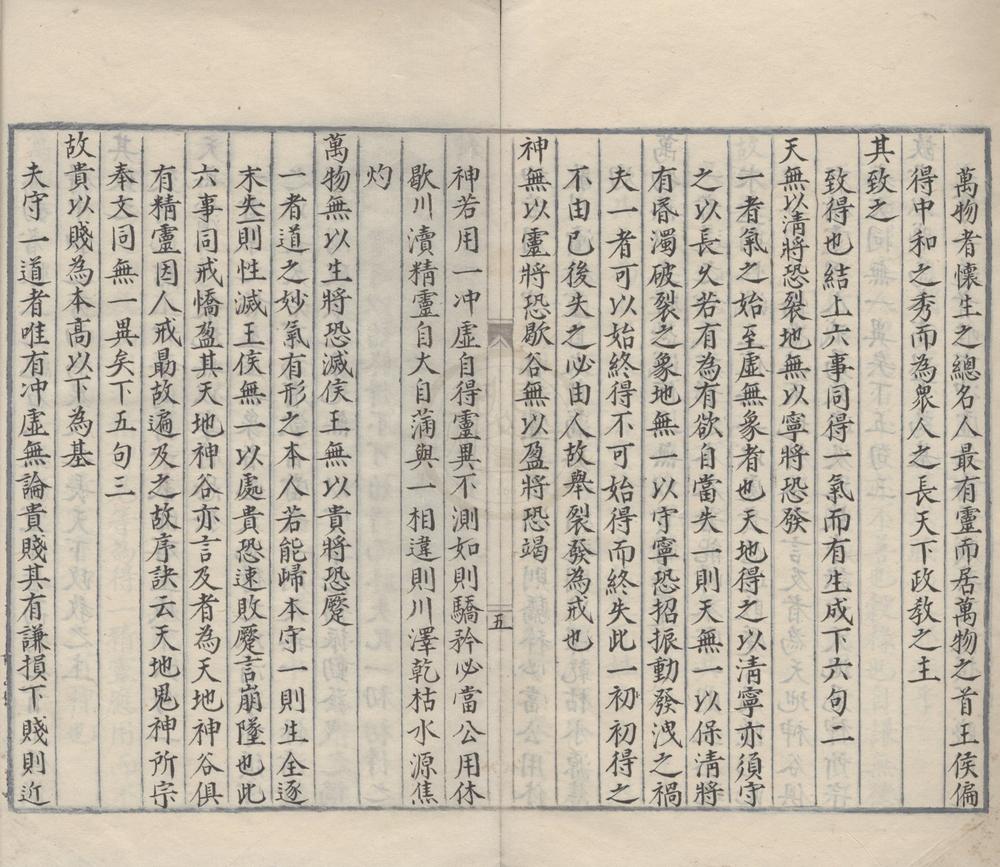 萬物者懷生之總名人最有靈而居萬物之首王侯偏
得中和之秀而為眾人之長天下政教之主
其致之
致得也結上六事同得一氣而有生成下六句二
天無以清將恐裂地無以寧將恐發
一者氣之始至虛無象者也天地得之以清寧亦須守
之以長久若有為有欲自當失一則天無一以保清將
有昏濁破裂之象地無一以守寧恐招振動發洩之禍
夫一者可以始終得不可始得而終失此一初初得之
不由已後失之必由人故舉裂發為戒也
神無以靈將恐歇谷無以盈將恐竭
五
神若用一冲虛自得靈異不測如則驕矜必當公用休
歇川瀆精靈自大自蒲與一相違則川澤乾枯水源焦
灼
萬物無以生將恐滅侯王無以貴將恐蹷
一者道之妙氣有形之本人若能歸本守一則生全逐
末失一則性滅王侯無一以處貴恐速敗蹷言崩墜也此
六事同戒憍盈其天地神谷亦言及者為天地神谷俱
有精靈因人戒勗故遍及之故序訣云天地鬼神所宗
奉文同無一異矣下五句三
故貴以賤為本高以下為基
夫守一道者唯有冲虛無論貴賤其有謙損下賤則近